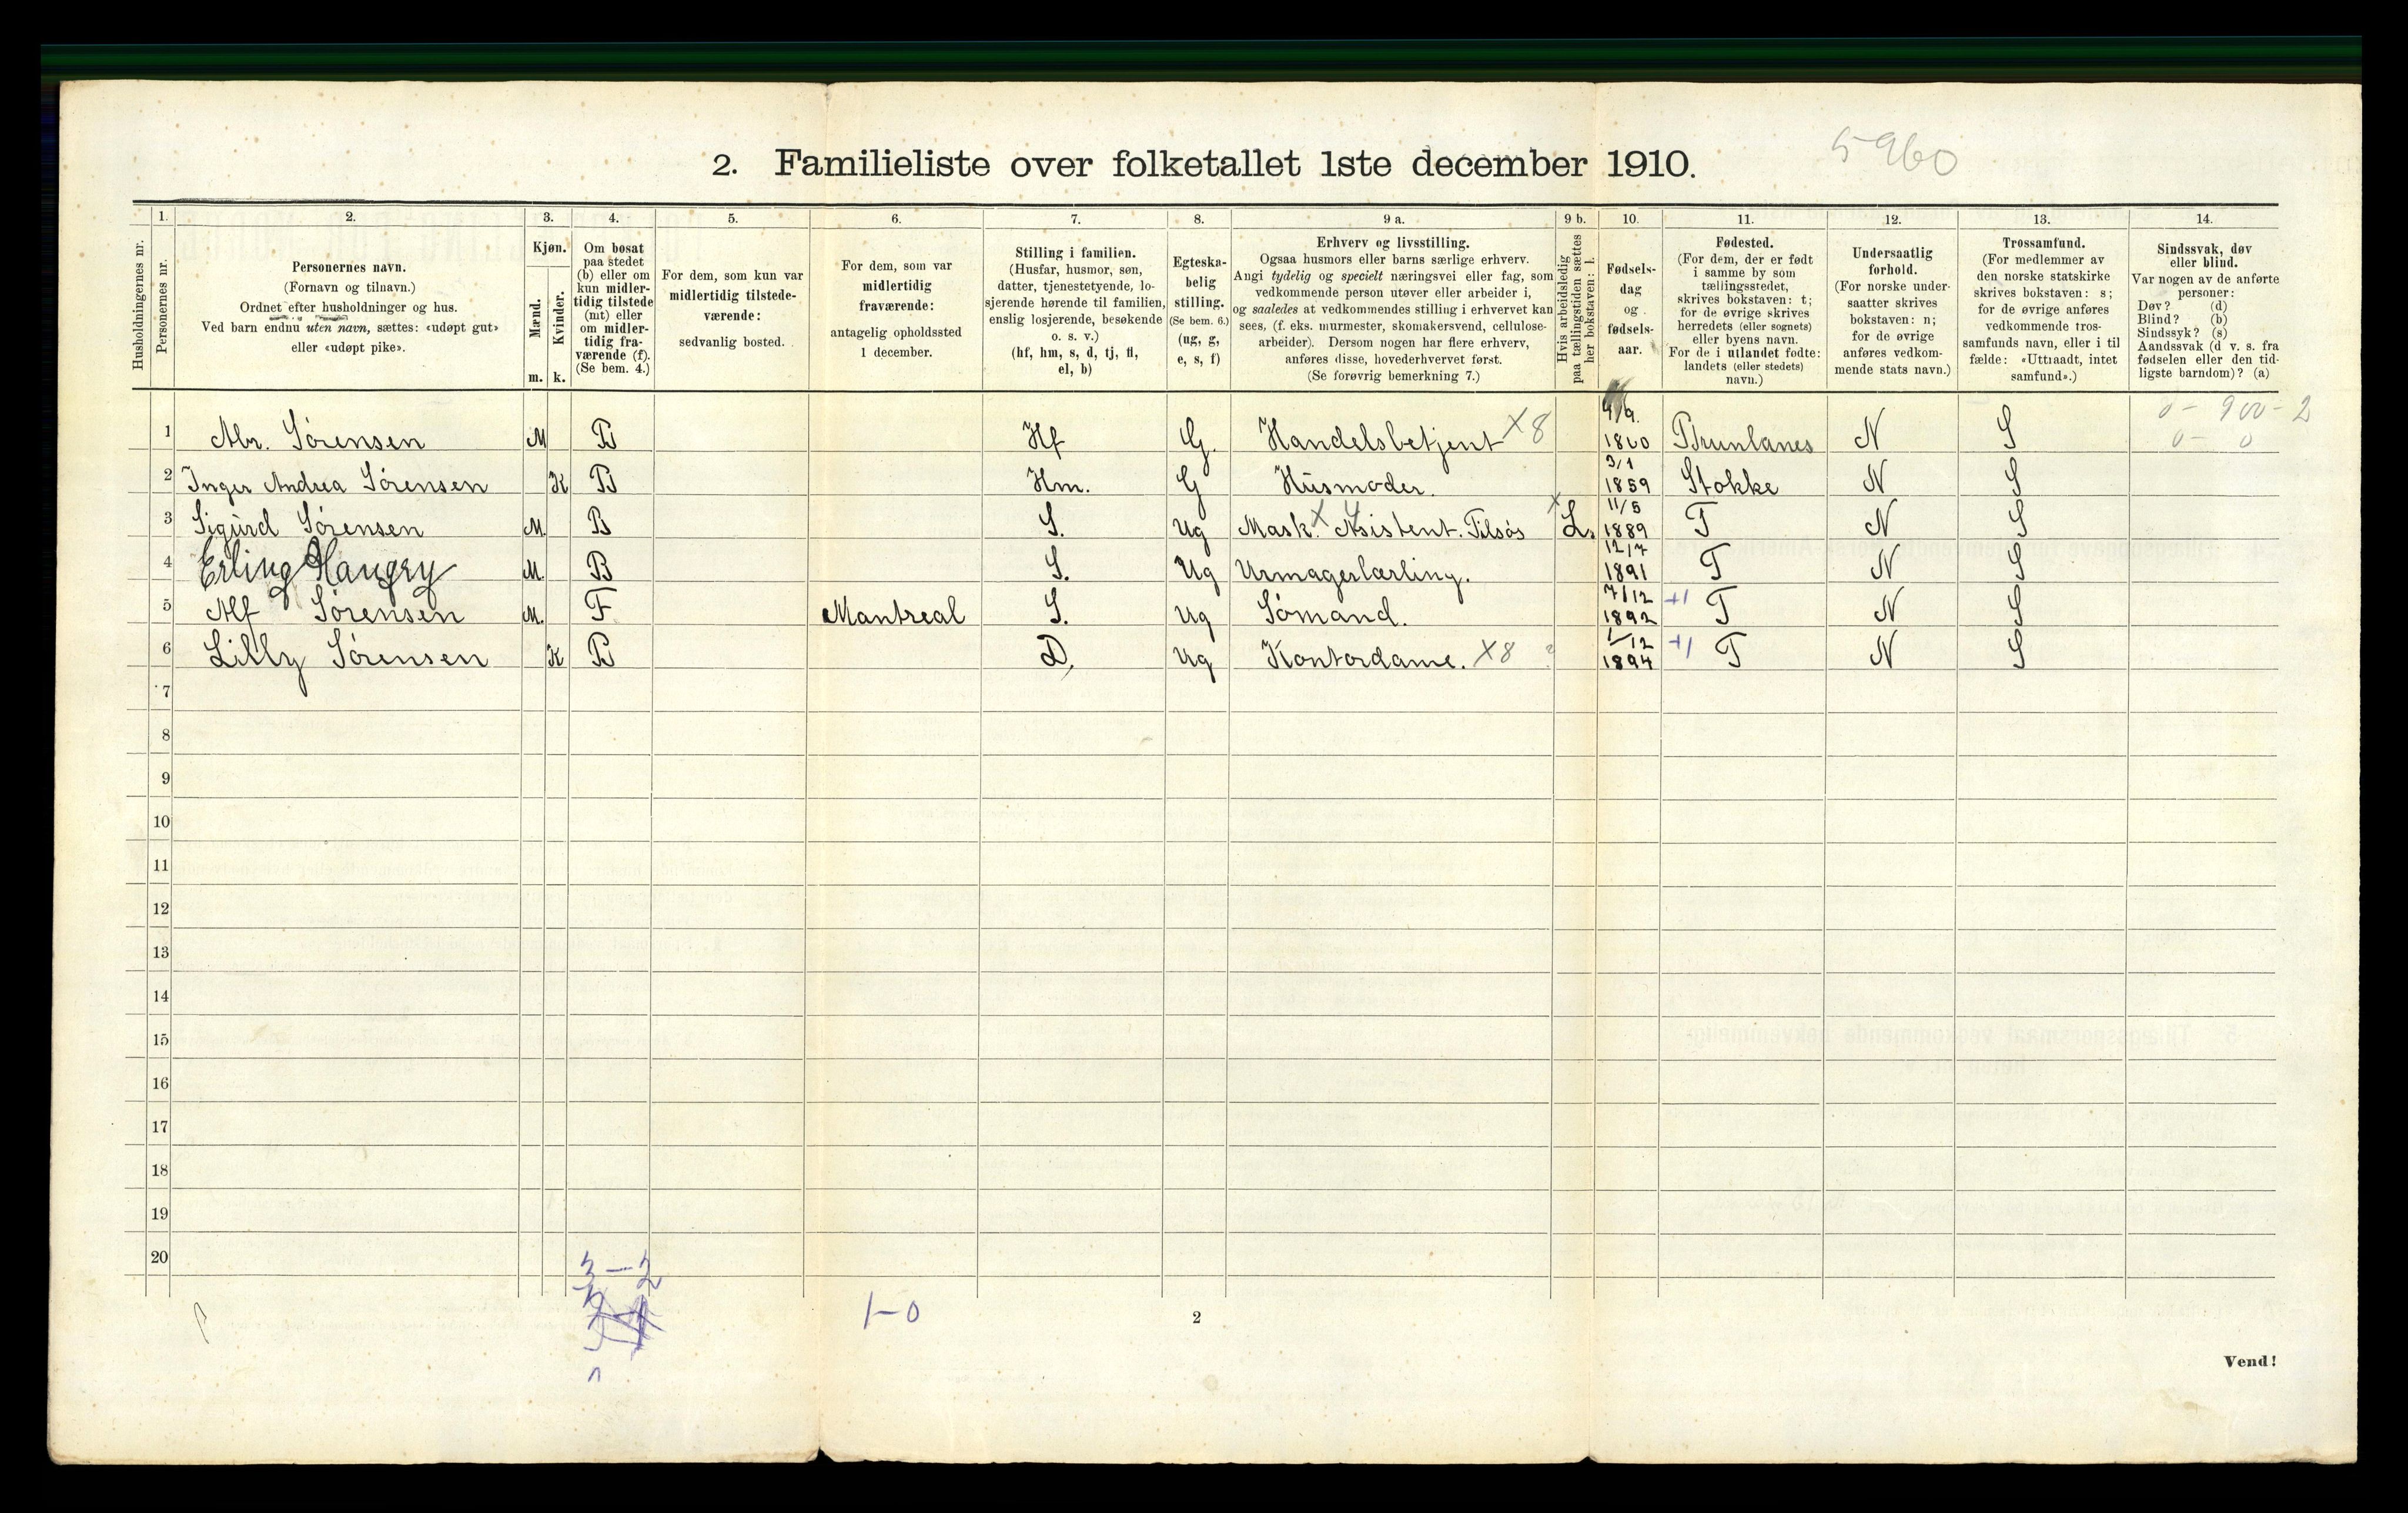 5960
2. Familieliste over folketallet 1ste december 1910.
1. 2. 3. 4. 5. 6. 7. 8. 9 a. 9 b. 10. 11. 12. 13. 14.
Husholdningernes nr.
Personernes nr.
Personernes navn.
(Fornavn og tilnavn.)
Ordnet efter husholdninger og hus.
Ved barn endnu uten navn, sættes: «udøpt gut»
eller «udøpt pike».
Kjøn.
Mænd.
Kvinder.
m. k.
Om bosat
paa stedet
(b) eller om
kun midler-
tidig tilstede
(mt) eller
om midler-
tidig fra-
værende (f).
(Se bem. 4.)
For dem, som kun var
midlertidig tilstede-
værende:
sedvanlig bosted.
For dem, som var
midlertidig
fraværende:
antagelig opholdssted
1 december.
Stilling i familien.
(Husfar, husmor, søn,
datter, tjenestetyende, lo-
sjerende hørende til familien,
enslig losjerende, besøkende
o. s. v.)
(hf, hm, s, d, tj, fl,
el, b)
Egteska-
belig
stilling.
(Se bem. 6.)
(ug, g,
e, s, f)
Erhverv og livsstilling.
Ogsaa husmors eller barns særlige erhverv.
Angi tydelig og specielt næringsvei eller fag, som
vedkommende person utøver eller arbeider i,
og saaledes at vedkommendes stilling i erhvervet kan
sees, (f. eks. murmester, skomakersvend, cellulose-
arbeider). Dersom nogen har flere erhverv,
anføres disse, hovederhvervet først.
(Se forøvrig bemerkning 7.)
Hvis arbeidsledig
paa tællingstiden sættes
her bokstaven: l.
Fødsels-
dag
og
fødsels-
aar.
Fødested.
(For dem, der er født
i samme by som
tællingsstedet,
skrives bokstaven: t;
for de øvrige skrives
herredets (eller sognets)
eller byens navn.
For de i utlandet fødte:
landets (eller stedets)
navn.)
Undersaatlig
forhold.
(For norske under-
saatter skrives
bokstaven: n;
for de øvrige
anføres vedkom-
mende stats navn.)
Trossamfund.
(For medlemmer av
den norske statskirke
skrives bokstaven: s;
for de øvrige anføres
vedkommende tros-
samfunds navn, eller i til-
fælde: «Uttraadt, intet
samfund».)
Sindssvak, døv
eller blind.
Var nogen av de anførte
personer:
Døv? (d)
Blind? (b)
Sindssyk? (s)
Aandssvak (d v. s. fra
fødselen eller den tid-
ligste barndom)? (a)
0 - 900 - 2
0 - 0
1 Abr. Sörensen M B Hf G. Handelsbetjent X8 4/9. 1860 Brunlanes N S
2 Inger Andrea Sörensen K B Hm. G Husmoder. 3/1 1859 Stokke N S
3 Sigurd Sörensen M. B S. Ug Mask. Asistent. Tilsös L. 11/5 1889 T N S
4 Erling M. B S. Ug Urmagerlærling. 12/7 1891 T N S
5 Alf Sörensen M. F Mantreal S. Ug Sömand. 7/12 1892 +1 T N S
6 Lilly Sörensen K B D. Ug Kontordame. X8 1/12 1894 +1 T N S
7
8
9
10
11
12
13
14
15
16
17
18
19
20
3-2
1-0
2
Vend!